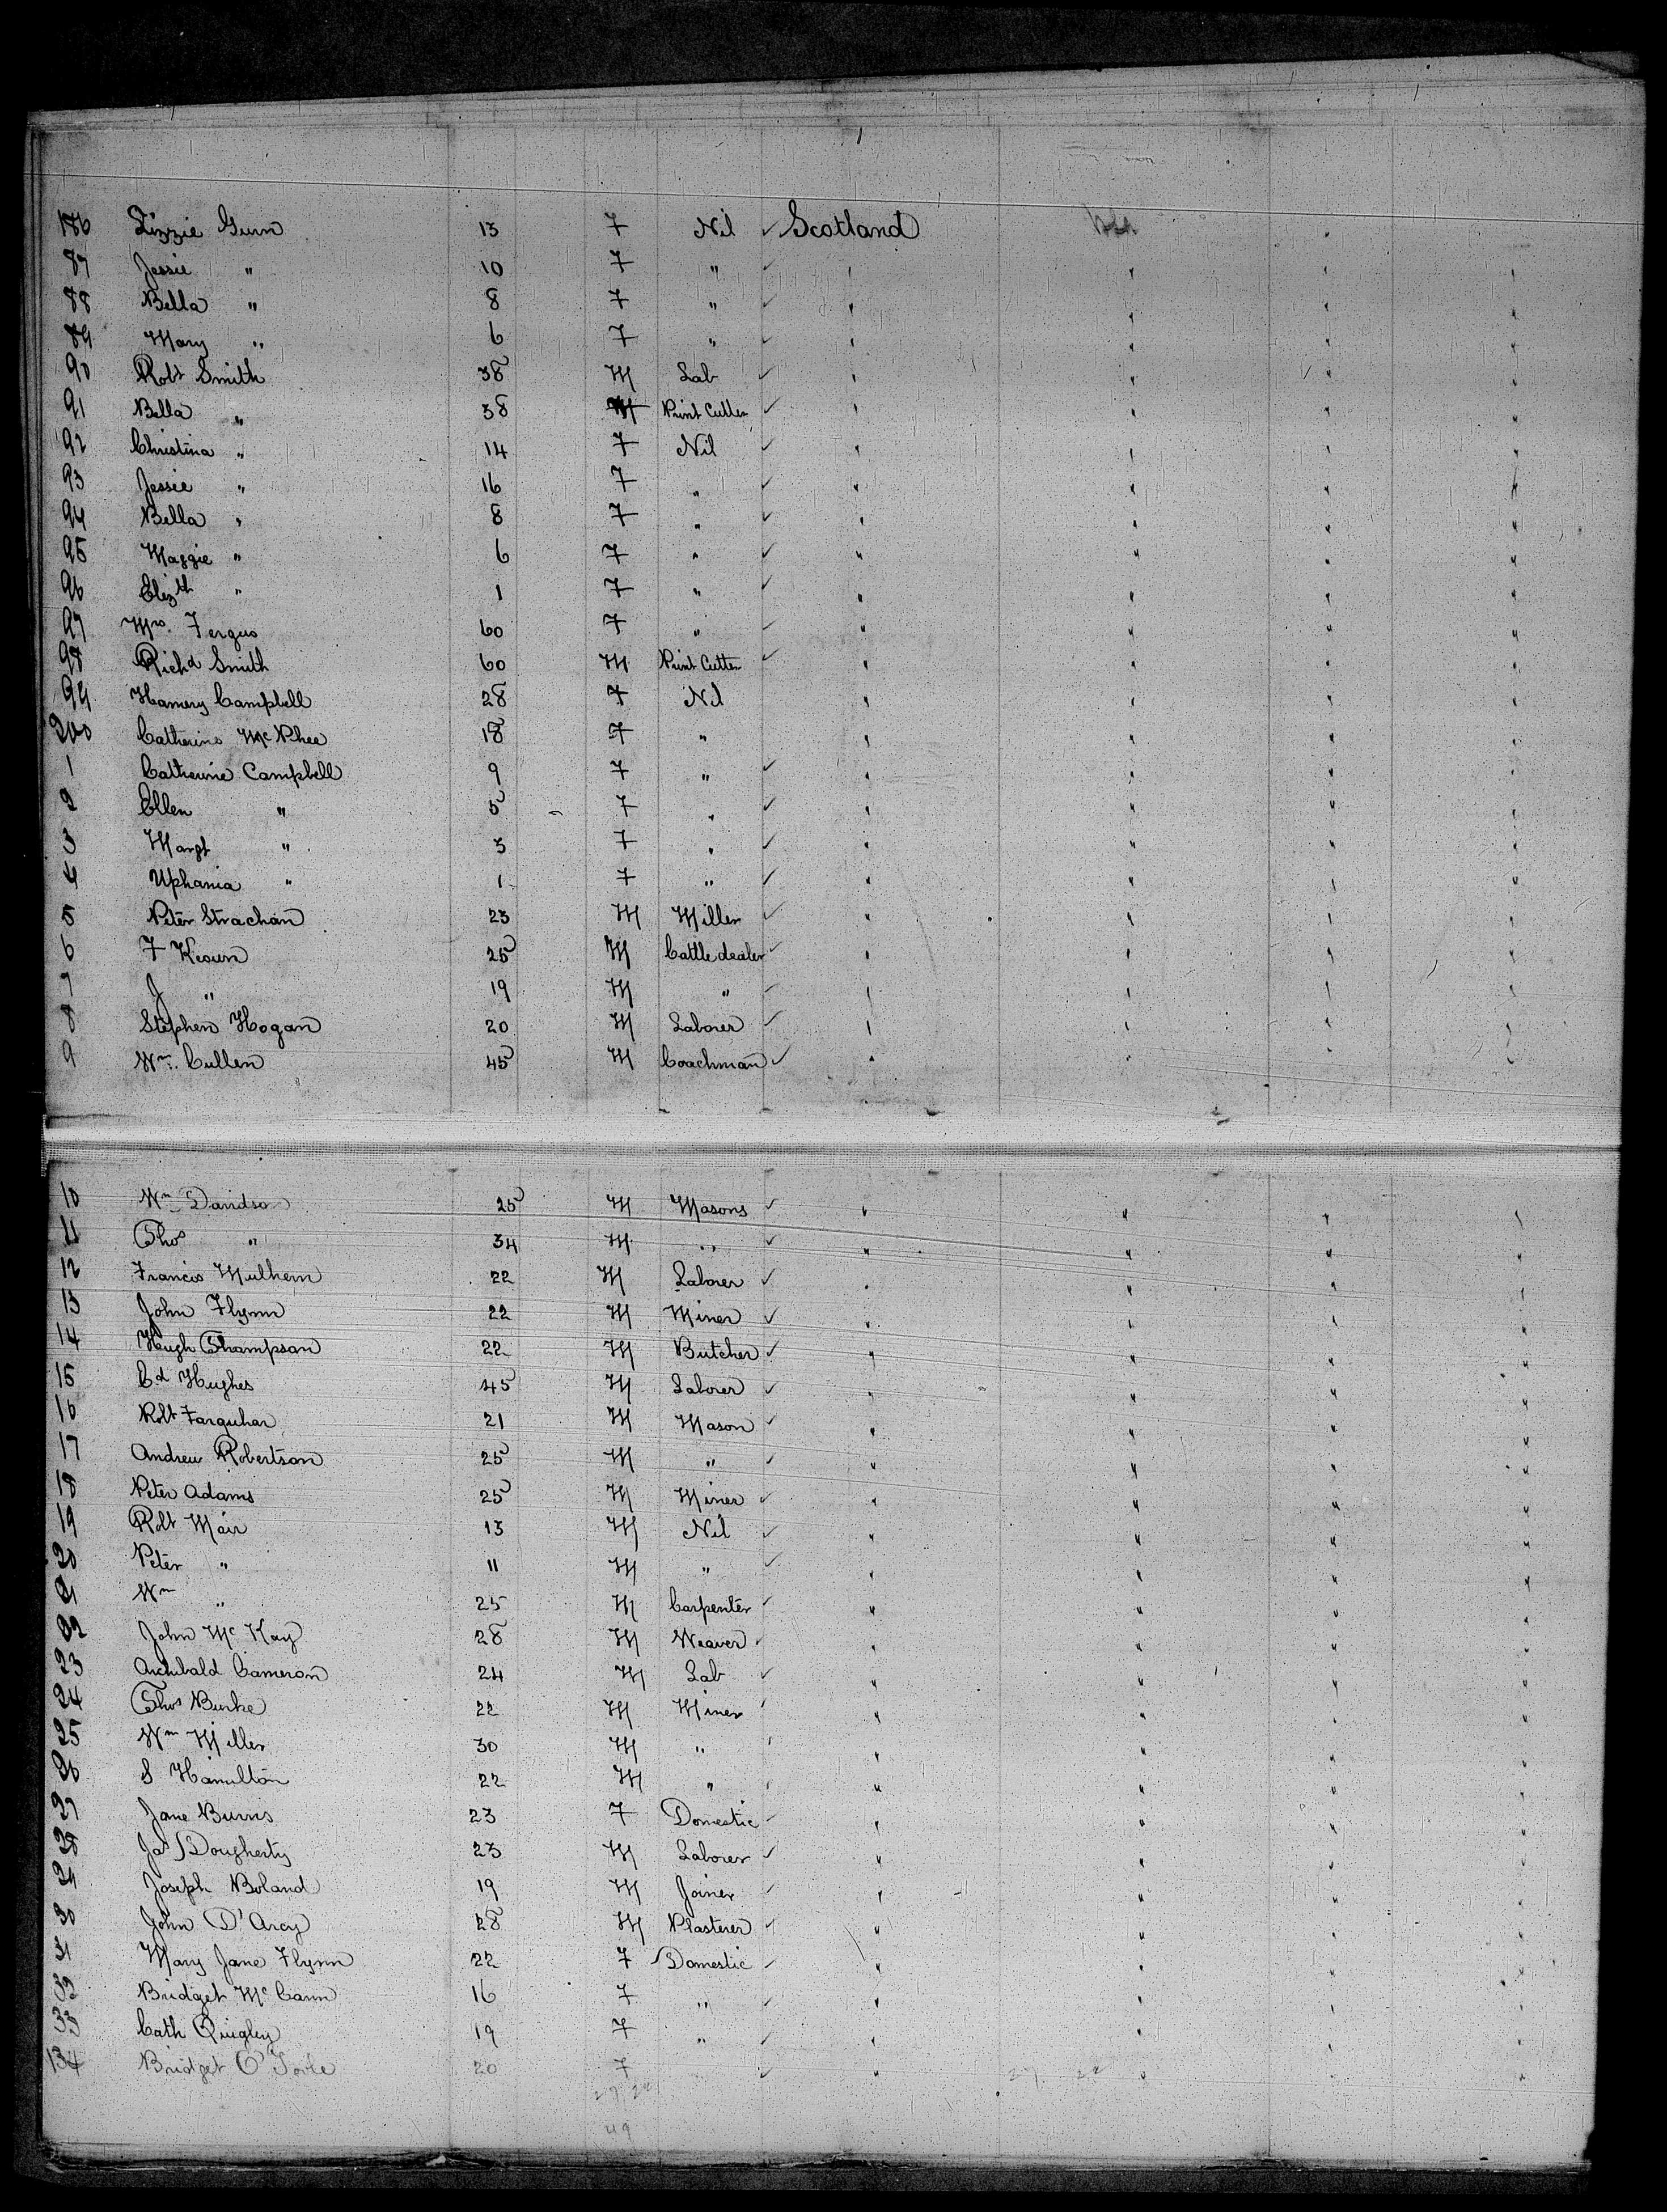 186 Lizzie Gunn 13 F Nil ✓ Scotland
87 Jessie " 10 F " ✓ "
88 Bella " 8 F " ✓ "
89 Mary " 6 F " ✓ "
90 Robt Smith 38 M Lab ✓ "
91 Bella " 38 Print Cutter ✓ "
92 Christina " 14 F Nil ✓ "
93 Jessie " 16 F " ✓ "
94 Bella " 8 F " ✓ "
95 Maggie " 6 F " ✓ "
96 Elizth " 1 F " ✓ "
97 Mrs. Fergus 60 F " ✓ "
98 Richd Smith 60 M Print Cutter ✓ "
99 Hamery Campbell 28 F Nil "
200 Catherine McPhee 18 F " "
1 Catherine Campbell 9 F " ✓ "
2 Ellen " 5 F " ✓ "
3 Margt " 3 F " ✓ "
4 Uphania " 1 F " ✓ "
5 Peter Strachan 23 M Miller ✓ "
6 F Keown 25 M Cattle dealer ✓ "
7 J " 19 M " ✓ "
8 Stephen Hogan 20 M Laborer ✓ "
9 Wm. Cullen 45 M Coachman ✓ "
10 Wm Davidson 25 M Masons ✓ "
11 Thos " 34 M " ✓ "
12 Francis Mulhern 22 M Laborer ✓ "
13 John Flynn 22 M Miner ✓ "
14 Hugh Thompson 22 M Butcher ✓ "
15 Ed Hughes 45 M Laborer ✓ "
16 Robt Farquhar 21 M Mason ✓ "
17 Andrew Robertson 25 M " ✓ "
18 Peter Adams 25 M Miner ✓ "
19 Robt Mair 13 M Nil ✓ "
20 Peter " 11 M " ✓ "
21 Wm " 25 M Carpenter ✓ "
22 John McKay 28 M Weaver ✓ "
23 Archibald Cameron 24 M Lab ✓ "
24 Thos Burke 22 M Miner ✓ "
25 Wm Miller 30 M " ✓ "
26 S Hamilton 22 M " ✓ "
27 Jane Burns 23 F Domestic ✓ "
28 Jas Dougherty 23 M Laborer ✓ "
29 Joseph Boland 19 M Joiner ✓ "
30 John D'Arcy 28 M Plasterer ✓ "
31 Mary Jane Flynn 22 F Domestic ✓ "
32 Bridget McCann 16 F " ✓ "
33 Cath Quigley 19 F " ✓ "
134 Bridget O'Toole 20 F ✓ "
49